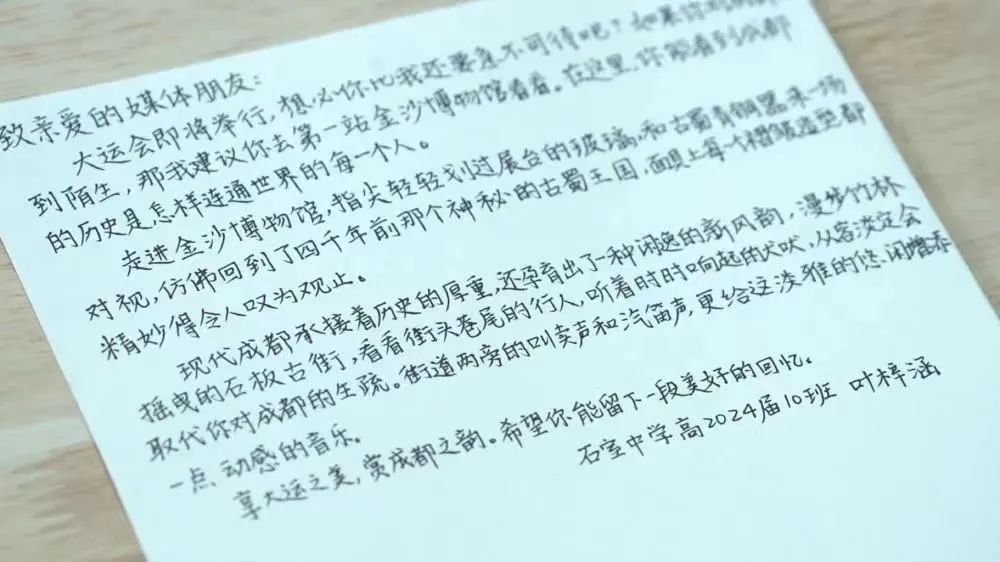 致亲爱的媒体朋友:
大运会即将举行,想必你比我还要急不可待吧?如果你对成都
到陌生,那我建议你去第一站金沙博物馆看看。在这里,你能看到成都
的历史是怎样连通世界的每一个人。
走进金沙博物馆,指尖轻轻划过展台的玻璃,和古蜀青铜器来一场
对视,仿佛回到了四千年前那个神秘的古蜀王国,面具上每一个都
精妙得令人叹为观止。
现代成都承接着历史的厚重,还孕育出了一种闲逸的新风韵,漫步竹林
摇曳的石板古街,看看街头巷尾的行人,听着时时响起的犬吠,从容淡定会
取代你对成都的生疏。街道两旁的叫卖声和汽笛声,更给这淡雅的悠闲增添
一点动感的音乐。
享大运之美,赏成都之韵。希望你能留下一段美好的回忆。
石室中学高2024届10班 叶梓涵